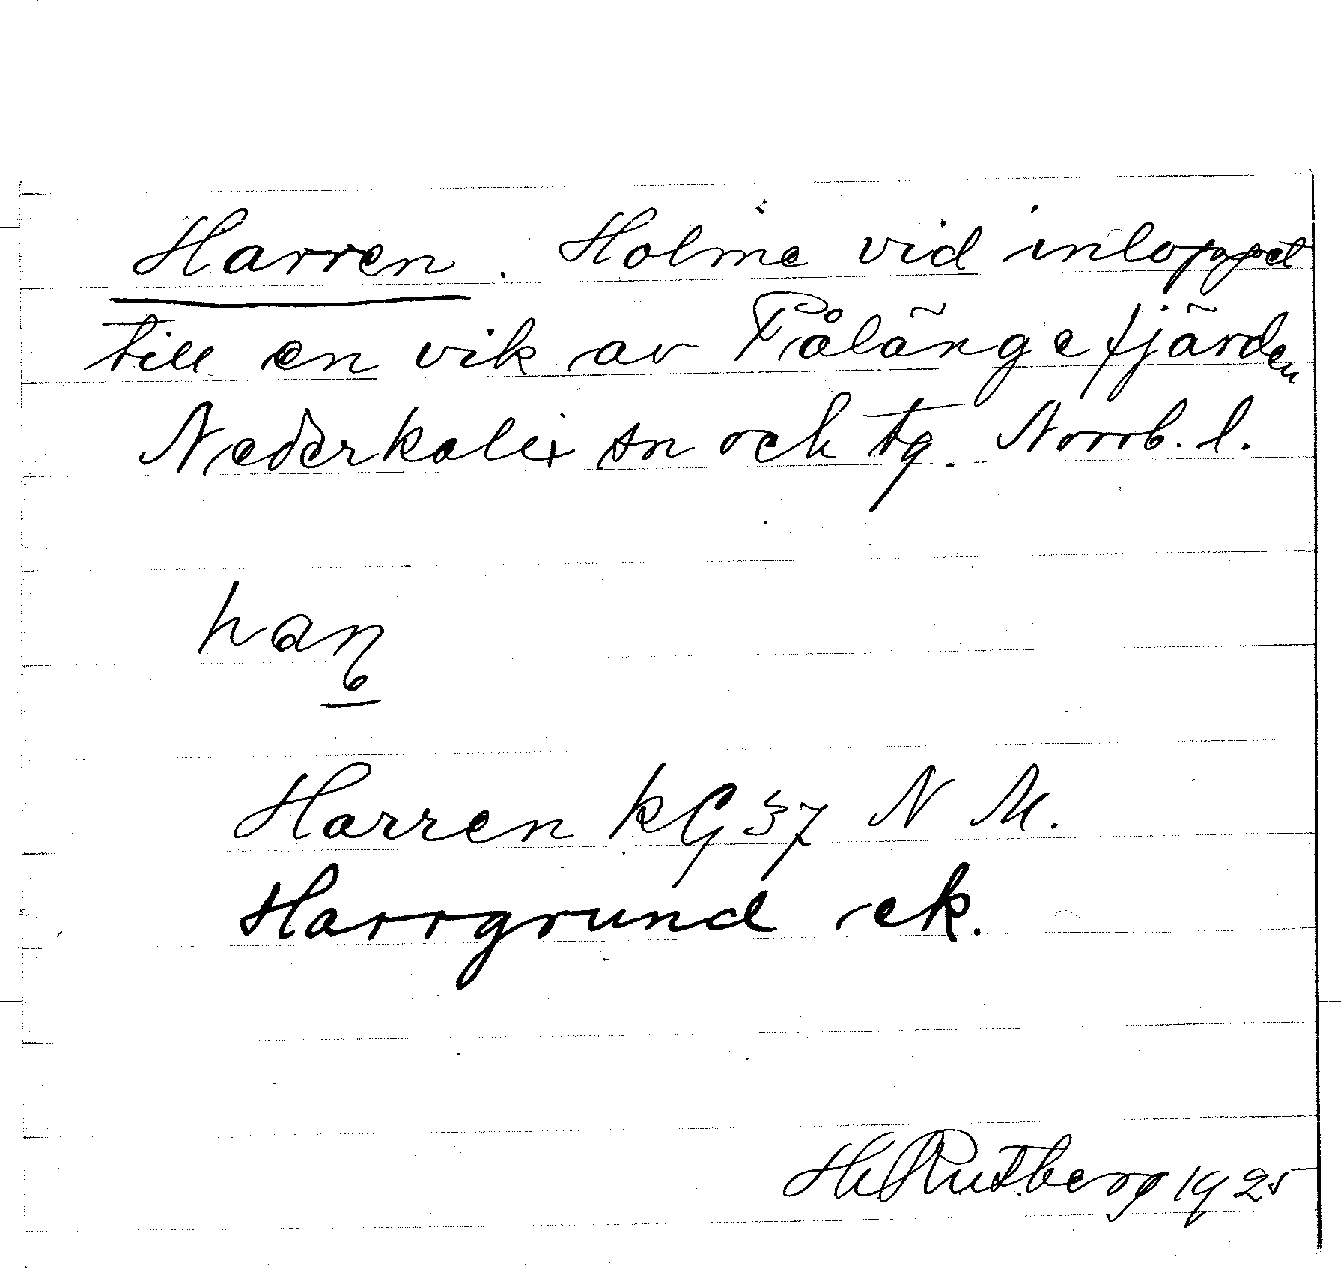 Harren. Holme vid inloppet
till en vik av Pålängefjärden
Nederkalix sn och tg. Norrb. l.
Harren kG 37 N M.
Harrgrund ek.
H Rutberg 1925